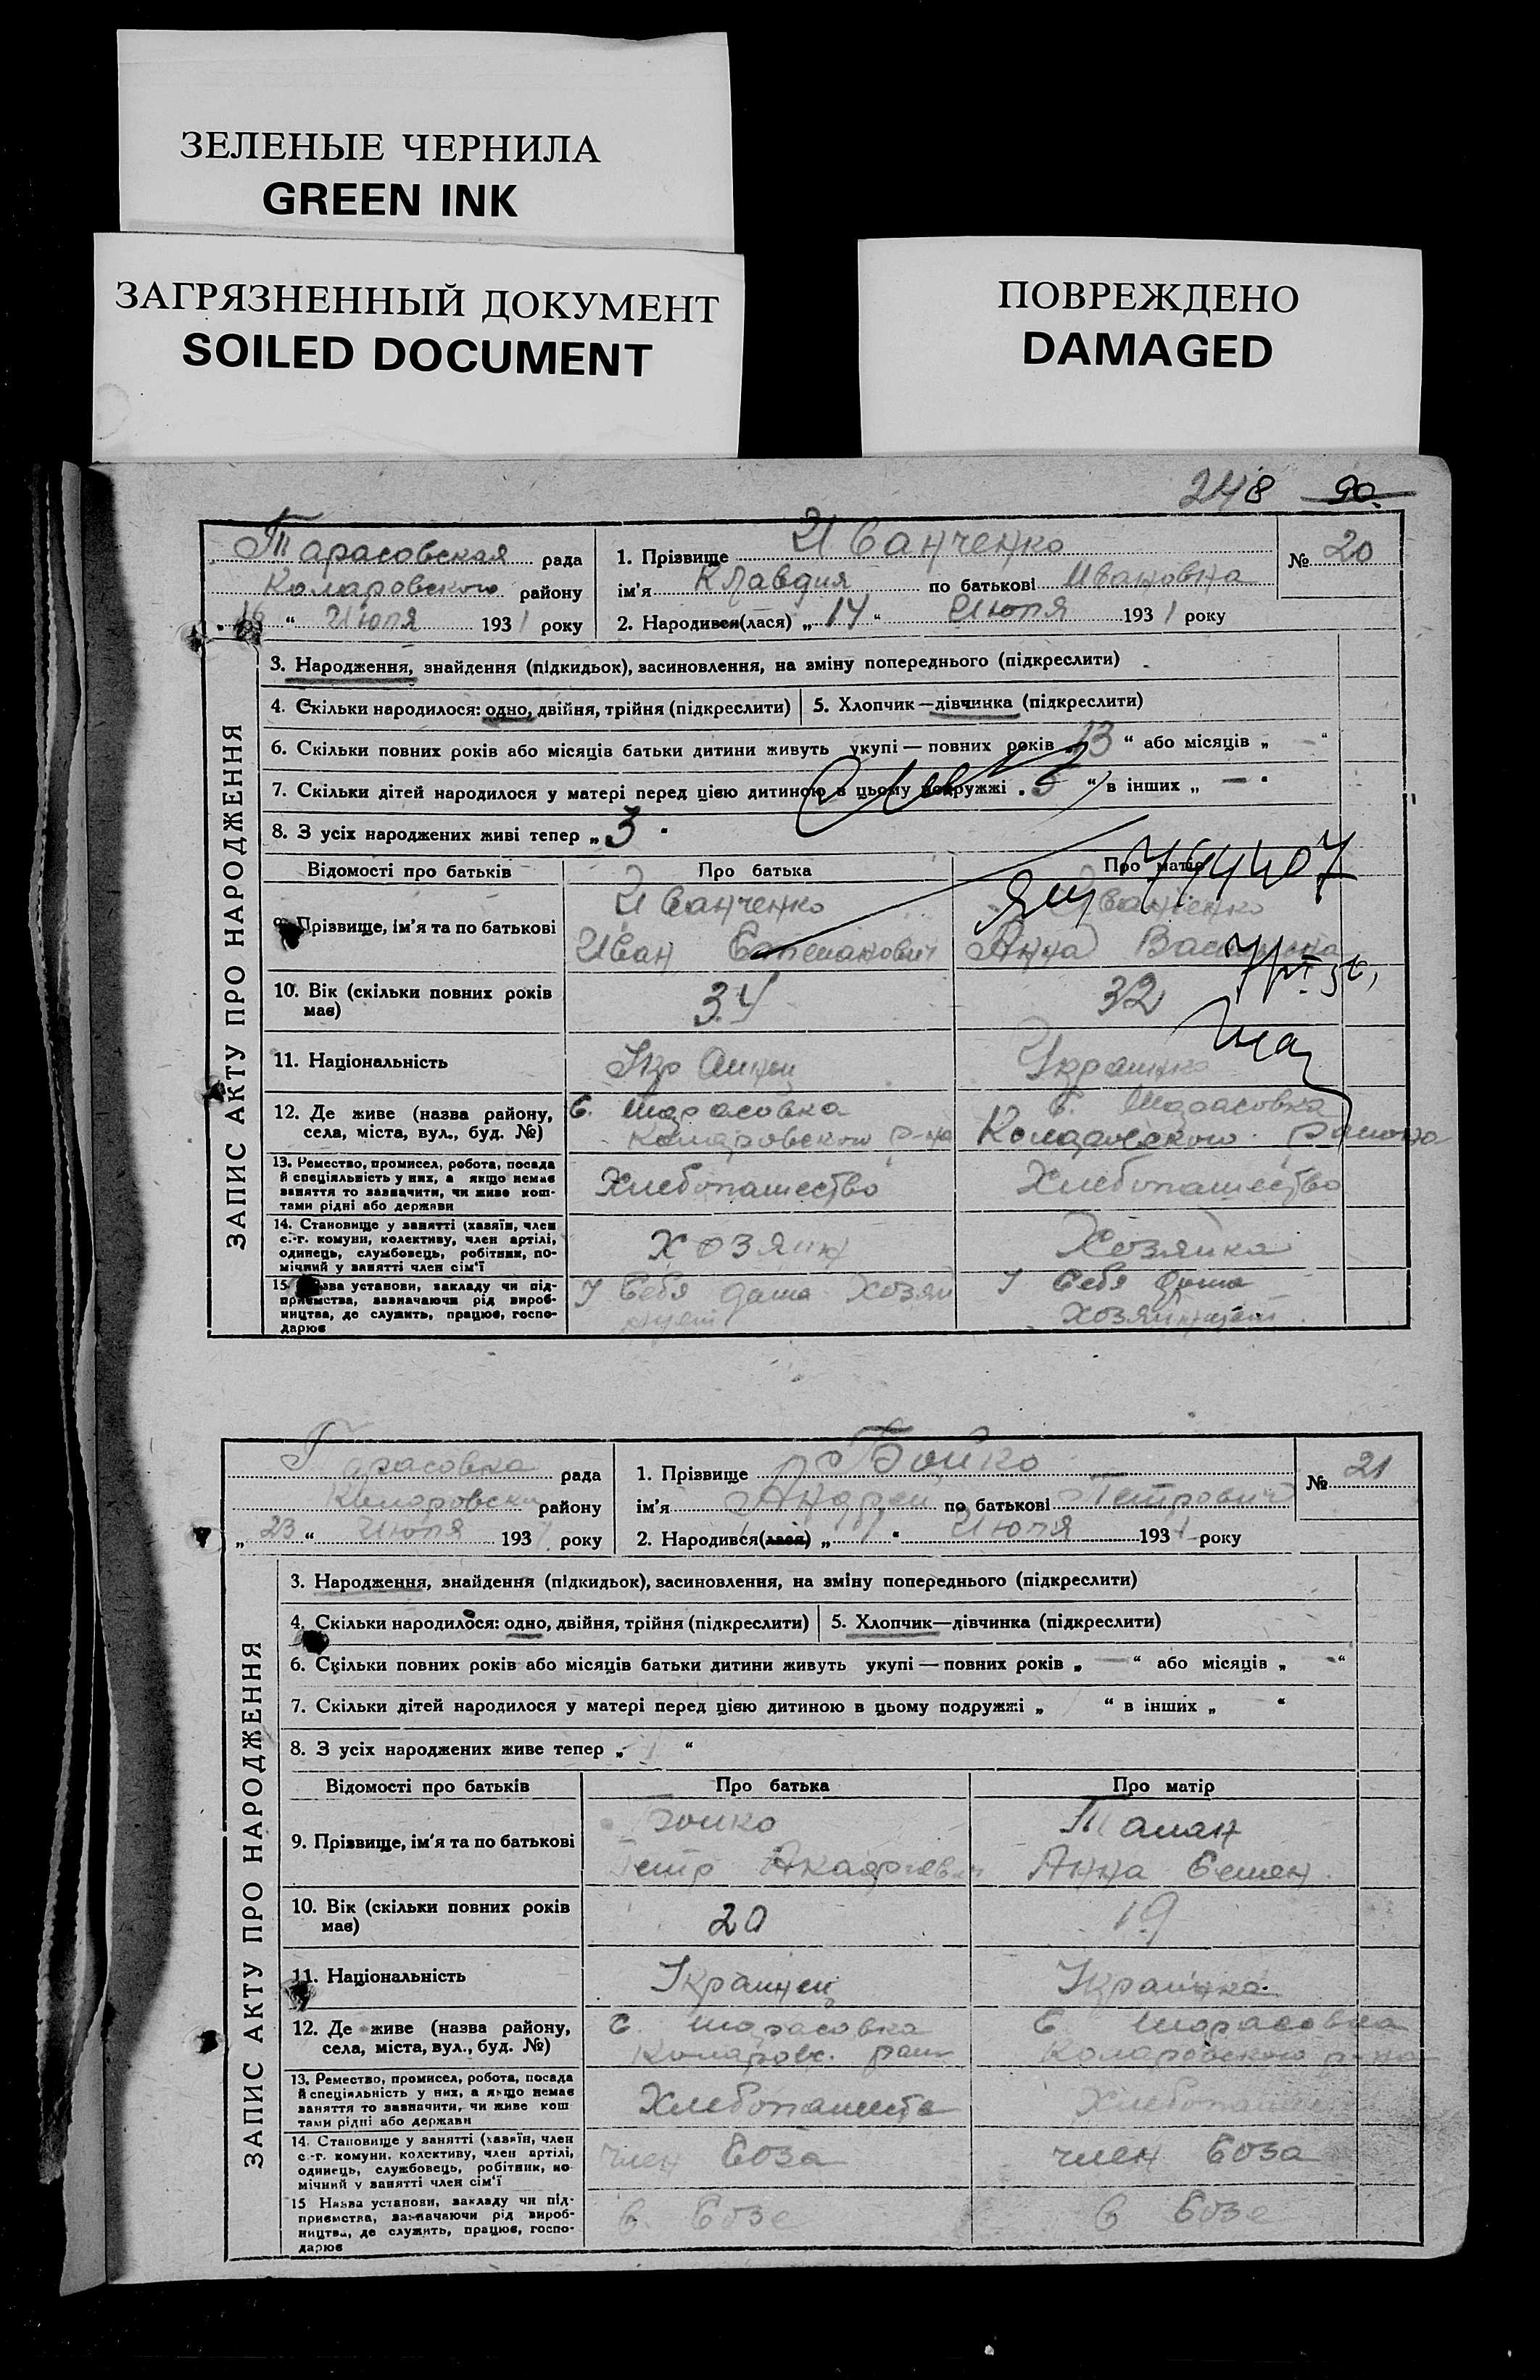 ЗЕЛЕНЫЕ ЧЕРНИЛА
GREEN INK
ЗАГРЯЗНЕННЫЙ ДОКУМЕНТ
SOILED DOCUMENT
ПОВРЕЖДЕНО
DAMAGED
248 90.
ЗАПИС АКТУ ПРО НАРОДЖЕННЯ
Тарасовская рада
Комаровского району
16 “ Июля 1931 року
1. Прізвище Иванченко
ім'я Клавдия по батькові Ивановна
2. Народився(лася) „ 14 “ Июля 1931 року
№ 20
3. Народження, знайдення (підкидьок), васиновлення, на зміну попереднього (підкреслити)
4. Скільки народилося: одно, двійня, трійня (підкреслити) 5. Хлопчик—дівчинка (підкреслити)
6. Скільки повних років або місяців батьки дитини живуть укупі — повних років „ 13 “ або місяців „ — “
7. Скільки дітей народилося у матері перед цією дитиною в цьому подружжі „ 5 “ в інших „ — “
8. З усіх народжених живі тепер „ 3 “
Відомості про батьків Про батька Про матір
9. Прізвище, ім'я та по батькові
Иванченко Иванченко
Иван Анна
10. Вік (скільки повних років має) 34 32
11. Національність Украинка
12. Де живе (назва району, села, міста, вул., буд. №)
с. Тарасовка с. Тарасовка
Комаровского р-на Комаровского района
13. Ремество, промисел, робота, посада й спеціяльність у них, а якщо немає заняття то зазначити, чи живе коштами рідні або держави
Хлебопашество Хлебопашество
14. Становище у занятті (хазяїн, член с.-г. комуни, колективу, член артілі, одинець, службовець, робітник, помічний у занятті член сім'ї
Хозяин Хозяйка
15. Назва установи, закладу чи підприємства, зазначаючи рід виробництва, де служить, працює, господарює
У себя дома У себя дома
ЗАПИС АКТУ ПРО НАРОДЖЕННЯ
Тарасовка рада
району
„ 23 “ Июля 193 року
1. Прізвище Бойко
ім'я Андрей по батькові Петрович
2. Народився(лася) „ “ Июля 1931 року
№ 21
3. Народження, знайдення (підкидьок), васиновлення, на зміну попереднього (підкреслити)
4. Скільки народилося: одно, двійня, трійня (підкреслити) 5. Хлопчик—дівчинка (підкреслити)
6. Скільки повних років або місяців батьки дитини живуть укупі — повних років „ — “ або місяців „ - “
7. Скільки дітей народилося у матері перед цією дитиною в цьому подружжі „ “ в інших „ “
8. З усіх народжених живе тепер „ “
Відомості про батьків Про батька Про матір
9. Прізвище, ім'я та по батькові
Бойко
Петр Анна Семен
10. Вік (скільки повних років має) 20 19
11. Національність Украинец Украинка
12. Де живе (назва району, села, міста, вул., буд. №)
с. Тарасовка с. Тарасовка
Комаровс. Комаровского р-на
13. Ремество, промисел, робота, посада й спеціяльність у них, а якщо немає заняття то зазначити, чи живе коштами рідні або держави
14. Становище у занятті (хазяїн, член с.-г. комуни, колективу, член артілі, одинець, службовець, робітник, помічний у занятті член сім'ї
член Соза член Соза
15 Назва установи, закладу чи підприємства, зазначаючи рід виробництва, де служить, працює, господарює
В Созе В Созе